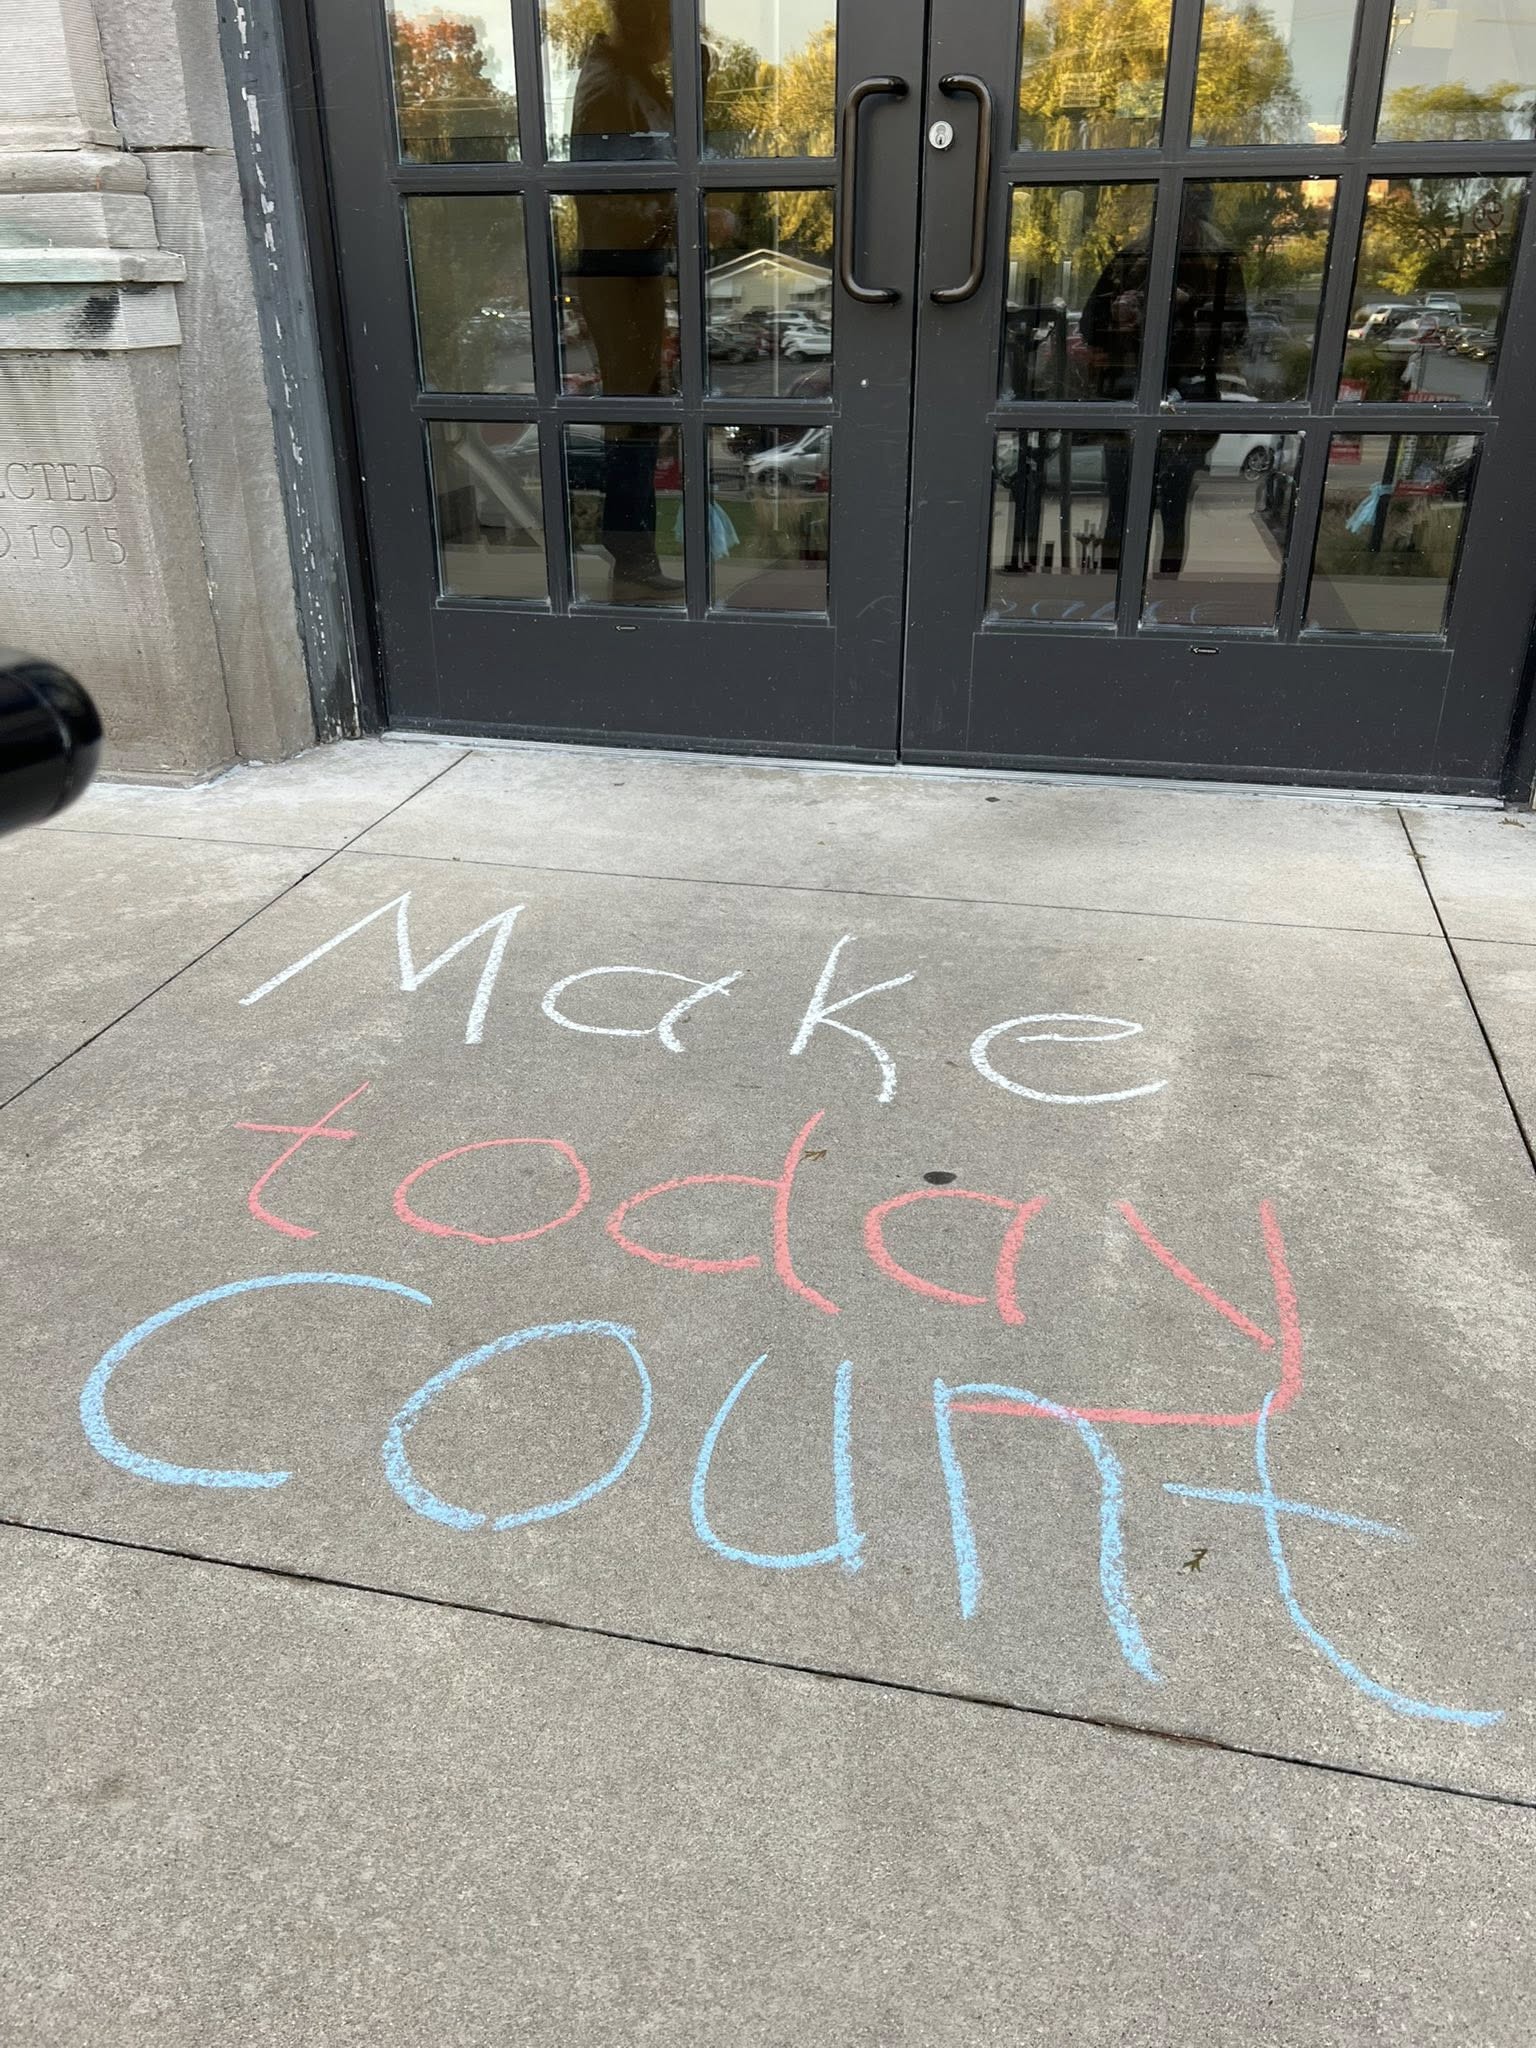 ECTED
D. 1915
Make
today
Count